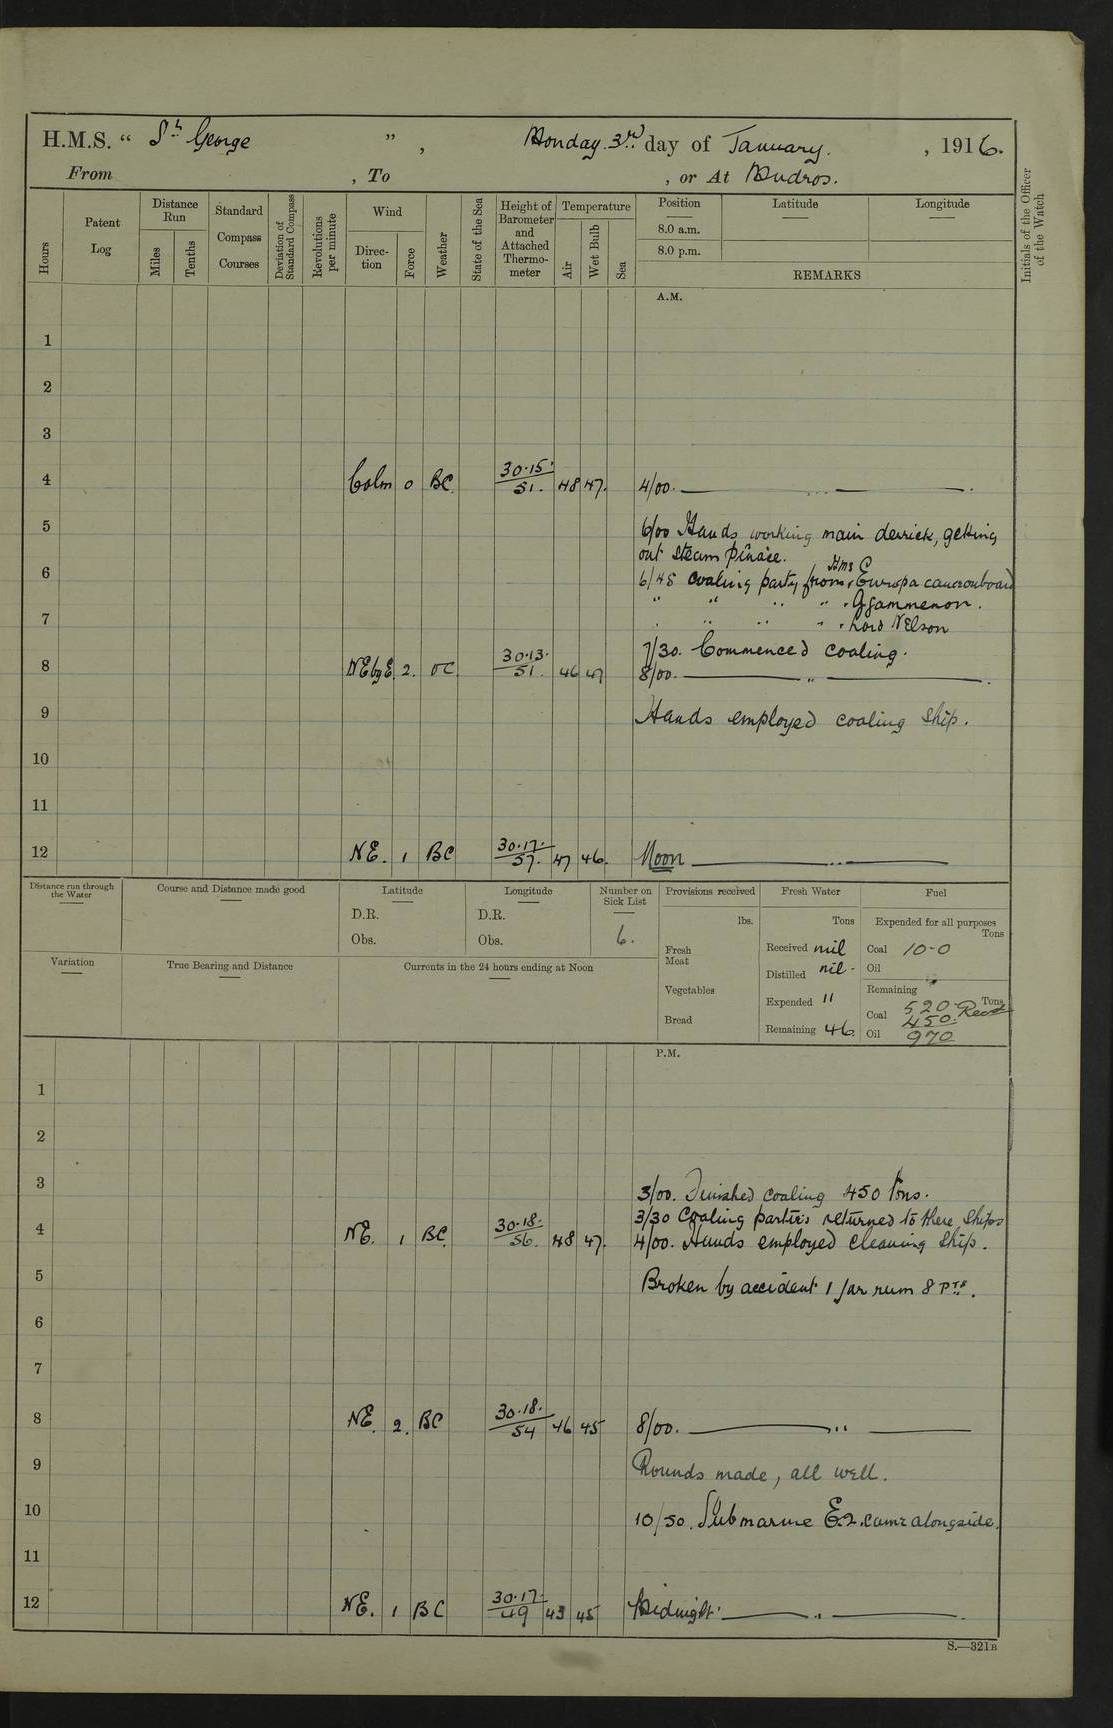 H.M.S. “ St George ” , Monday 3rd day of January. , 1916.
From , To , or At Mudros.
Hours
Patent Log
Distance Run
Miles
Tenths
Standard Compass Courses
Deviation of Standard Compass
Revolutions per minute
Wind
Direc-tion
Force
Weather
State of the Sea
Height of Barometer and Attached Thermo-meter
Temperature
Air
Wet Bulb
Sea
Position
8.0 a.m.
8.0 p.m.
Latitude
Longitude
REMARKS
Initials of the Officer of the Watch
A.M.
1
2
3
4 Calm 0 BC. 30.15. 51. 48 47. 4/00. — „ — .
5 6/00 Hands working main derrick, getting
out steam pinace.
6 6/45 coaling party from HMS Europa came onboard
" " " " " Agammemon.
7 " " " " " Lord Nelson
7/30. Commenced coaling.
8 NEbyE. 2. OC. 30.13. 51. 46 47 8/00. — „ — .
9 Hands employed coaling ship.
10
11
12 NE. 1 BC 30.17. 57. 47 46. Noon — „ —
Distance run through the Water
Course and Distance made good
Latitude
D.R.
Obs.
Longitude
D.R.
Obs.
Number on Sick List
6.
Provisions received
lbs.
Fresh Meat
Vegetables
Bread
Fresh Water
Tons
Received nil
Distilled nil -
Expended "
Remaining 46.
Fuel
Expended for all purposes
Tons
Coal 10-0
Oil
Remaining
Tons
Coal 520
450. Recd
Oil 970
Variation
True Bearing and Distance
Currents in the 24 hours ending at Noon
P.M.
1
2
3 3/00. Finished coaling 450 Tons.
3/30 Coaling parties returned to there ships
4 NE. 1 BC. 30.18. 56. 48 47. 4/00. Hands employed cleaning ship.
5 Broken by accident 1 Jar rum 8 Pts.
6
7
8 NE. 2. BC 30.18. 54 46 45 8/00. — „ —
9 Rounds made, all well.
10 10/50. Submarine E.2. came alongside.
11
12 NE. 1 BC 30.17. 49 43 45 Midnight. — „ — .
S.—321B